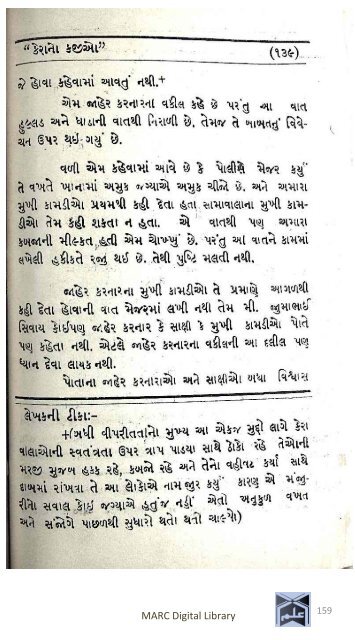 “કેરાનો કજીઓ” (૧૩૯)
જે હોવા કહેવામાં આવતું નથી.+
એમ જાહેર કરનારના વકીલ કહે છે પરંતુ આ વાત
હુલ્લડ અને ધાડાની વાતથી નિરાળી છે. તેમજ તે બાબતનું વિવે-
ચન ઉપર થઇ ગયું છે.
વળી એમ કહેવામાં આવે છે કે પોલીસે મેજર કર્યું
તે વખતે ખાનામાં અમુક જગ્યાએ અમુક ચીજો છે. અને અમારા
મુખી કામડીઓ પ્રથમથી કહી દેતા હતા સામાવાલાના મુખી કામ-
ડીઓ તેમ કહી શકતા ન હતા. એ વાતથી પણ અમારા
કબજાની મીલ્કત હતી એમ ચોખ્ખું છે. પરંતુ આ વાતને કામમાં
લખેલી હકીકતે રજુ થઇ છે. તેથી પુષ્ટિ મલતી નથી.
જાહેર કરનારના મુખી કામડીઓ તે પ્રમાણે આગળથી
કહી દેતા હોવાની વાત મેજરમાં લખી નથી તેમ મી. જીમાભાઈ
સિવાય કોઈપણ જાહેર કરનાર કે સાક્ષી કે મુખી કામડીઓ પોતે
પણ કહેતા નથી. એટલે જાહેર કરનારના વકીલની આ દલીલ પણ
ધ્યાન દેવા લાયક નથી.
પોતાના જાહેર કરનારાઓ અને સાક્ષીઓ બધા વિશ્વાસ
લેખકની ટીકા:-
+(ત્રધી વીપરીતતાનો મુખ્ય આ એકજ મુદ્દો લાગે કેરા
વાલાઓની સ્વતંત્રતા ઉપર ત્રાપ પાડયા સાથે હોકો રહે તેઓની
મરજી મુજબ હક્ક રહે, કબજો રહે અને તેનો વહીવટ કર્યો સાથે
દાબમાં રાંખવા તે આ લોકોએ નામંજીર કર્યું કારણ એ મંજુ-
રીનો સવાલ કોઈ જગ્યાએ હતુંજ નહીં એતો અનુકુળ વખત
અને સંજોગે પાછળથી સુધારો થતો થતો ચાલ્યો)
MARC Digital Library 159